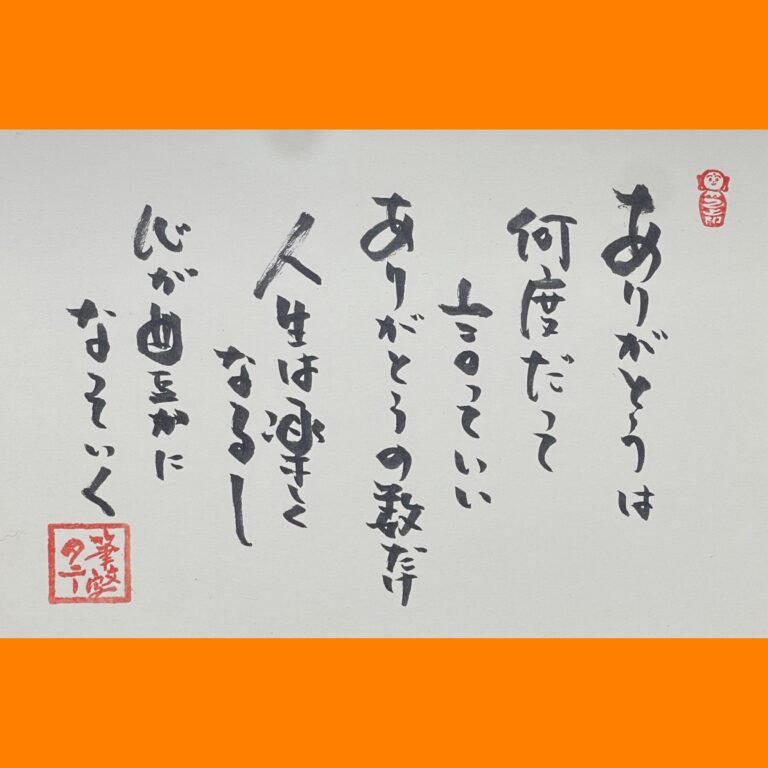 ありがとうは
何度だって
言っていい
ありがとうの数だけ
人生は楽しく
なるし
心が豊かに
なっていく